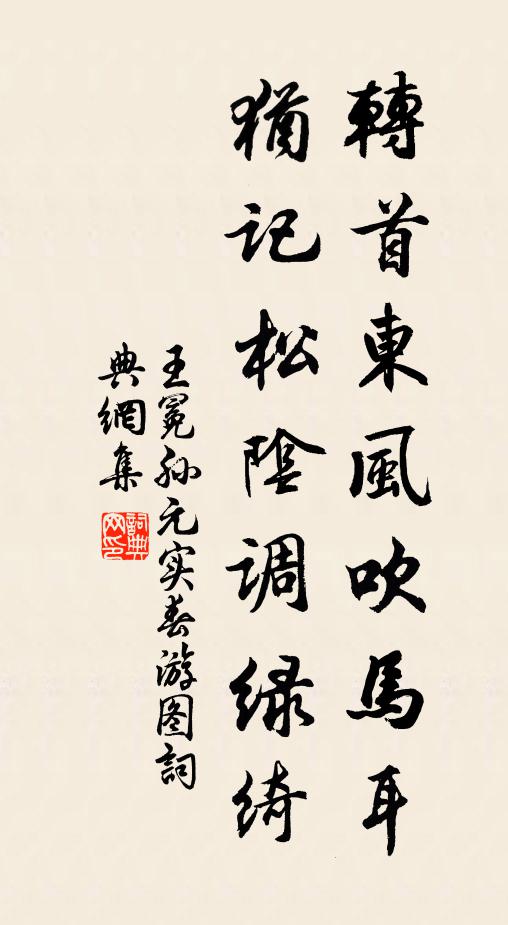 轉首東風吹馬耳
猶記松陰調绿綺
王冕孙元实春游图詞
典網集
詞典
网印